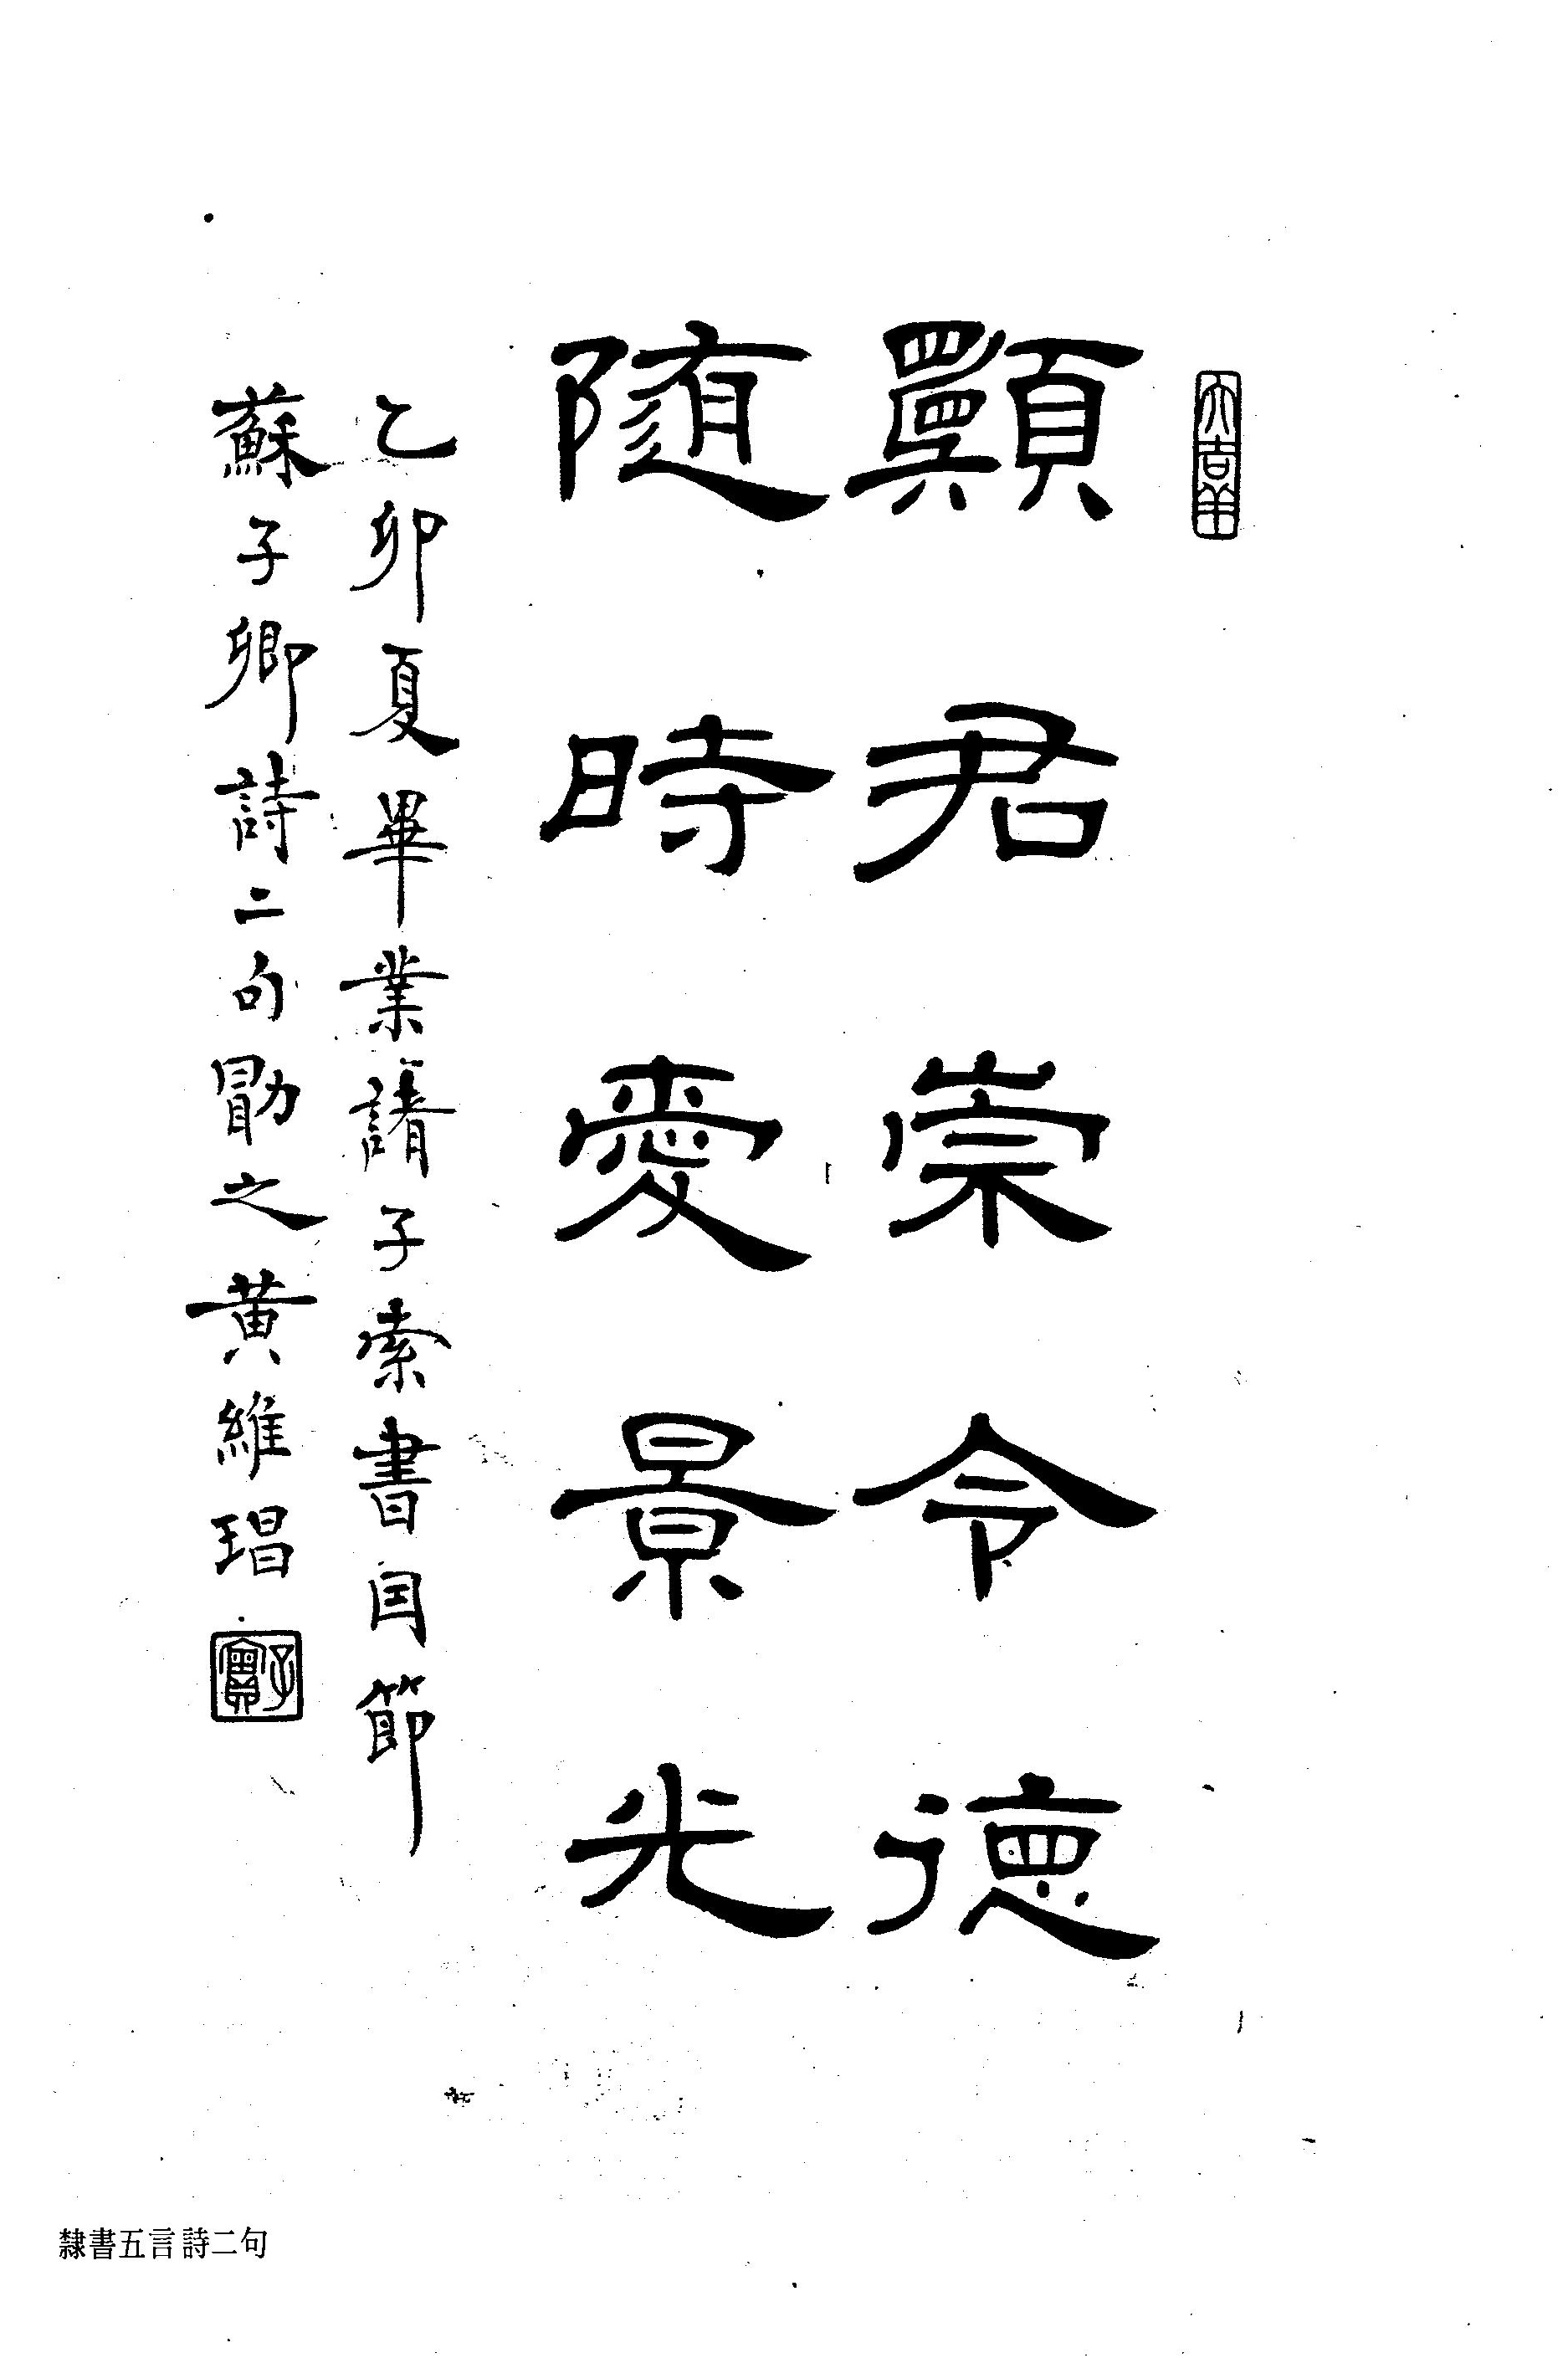 大吉羊
願君崇令德
随時愛景光
乙卯夏畢業諸子索書因節
蘇子卿詩二句勖之黃維琩
子實
隸書五言詩二句